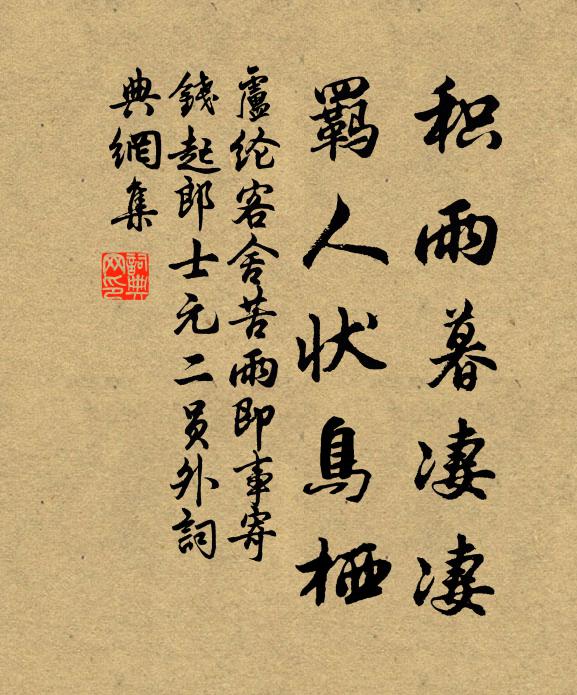 积雨暮凄凄
羁人状鳥栖
盧纶客舍苦雨即事寄
錢起郎士元二员外詞
典網集
詞典
网印